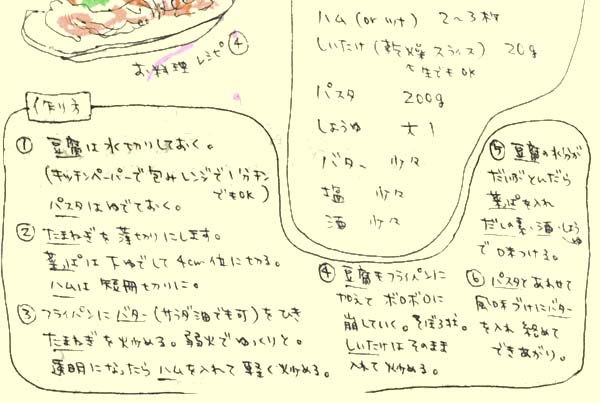 お料理レシピ④
ハム (or ツナ) 2〜3枚
しいたけ (乾燥スライス) 20g
↑生でもOK
パスタ 200g
しょうゆ 大1
バター 少々
塩 少々
酒 少々
作り方
① 豆腐は水切りしておく。
(キッチンペーパーで包みレンジで1分チン
でもOK)
パスタはゆでておく。
② たまねぎを薄切りにします。
葉っぱは下ゆでして4cm位に切る。
ハムは短冊切りに。
③ フライパンにバター(サラダ油でも可)をひき
たまねぎを炒める。弱火でゆっくりと。
透明になったらハムを入れて軽く炒める。
④ 豆腐をフライパンに
加えてボロボロに
崩していく。そぼろ状。
しいたけはそのまま
入れて炒める。
⑤ 豆腐の水分が
だいぶとんだら
葉っぱを入れ
だしの素・酒・しょうゆ
で味つける。
⑥ パスタとあわせて
風味づけにバター
を入れ絡めて
できあがり。